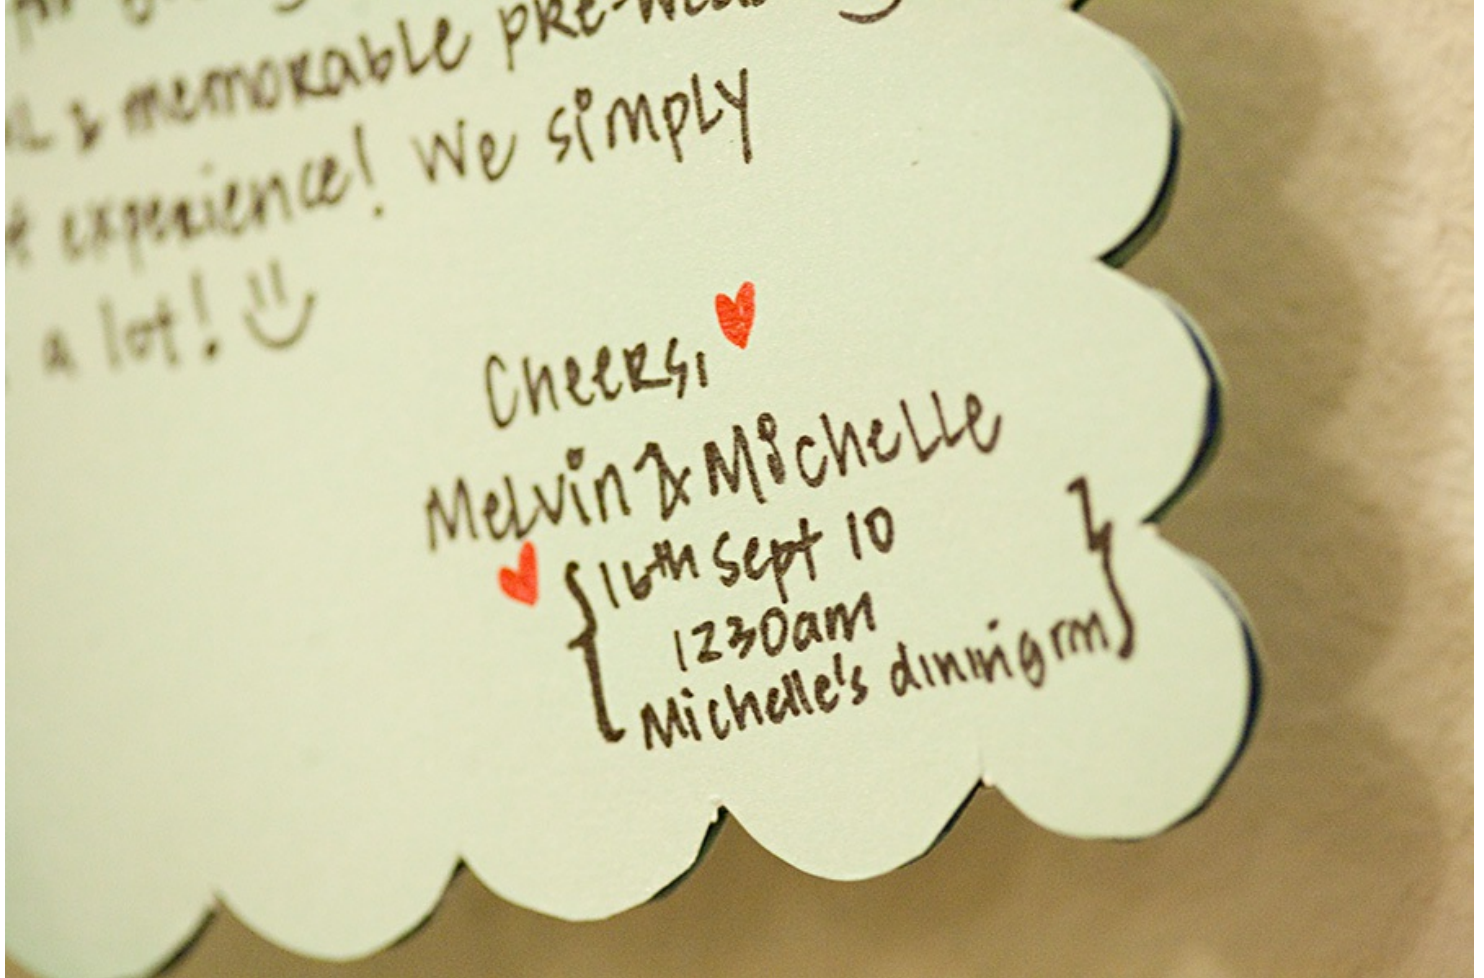 & memorable pre-wed
experience! We simply
a lot!
Cheers,
Melvin & Michelle
16th Sept 10
1230am
Michelle's dining rm